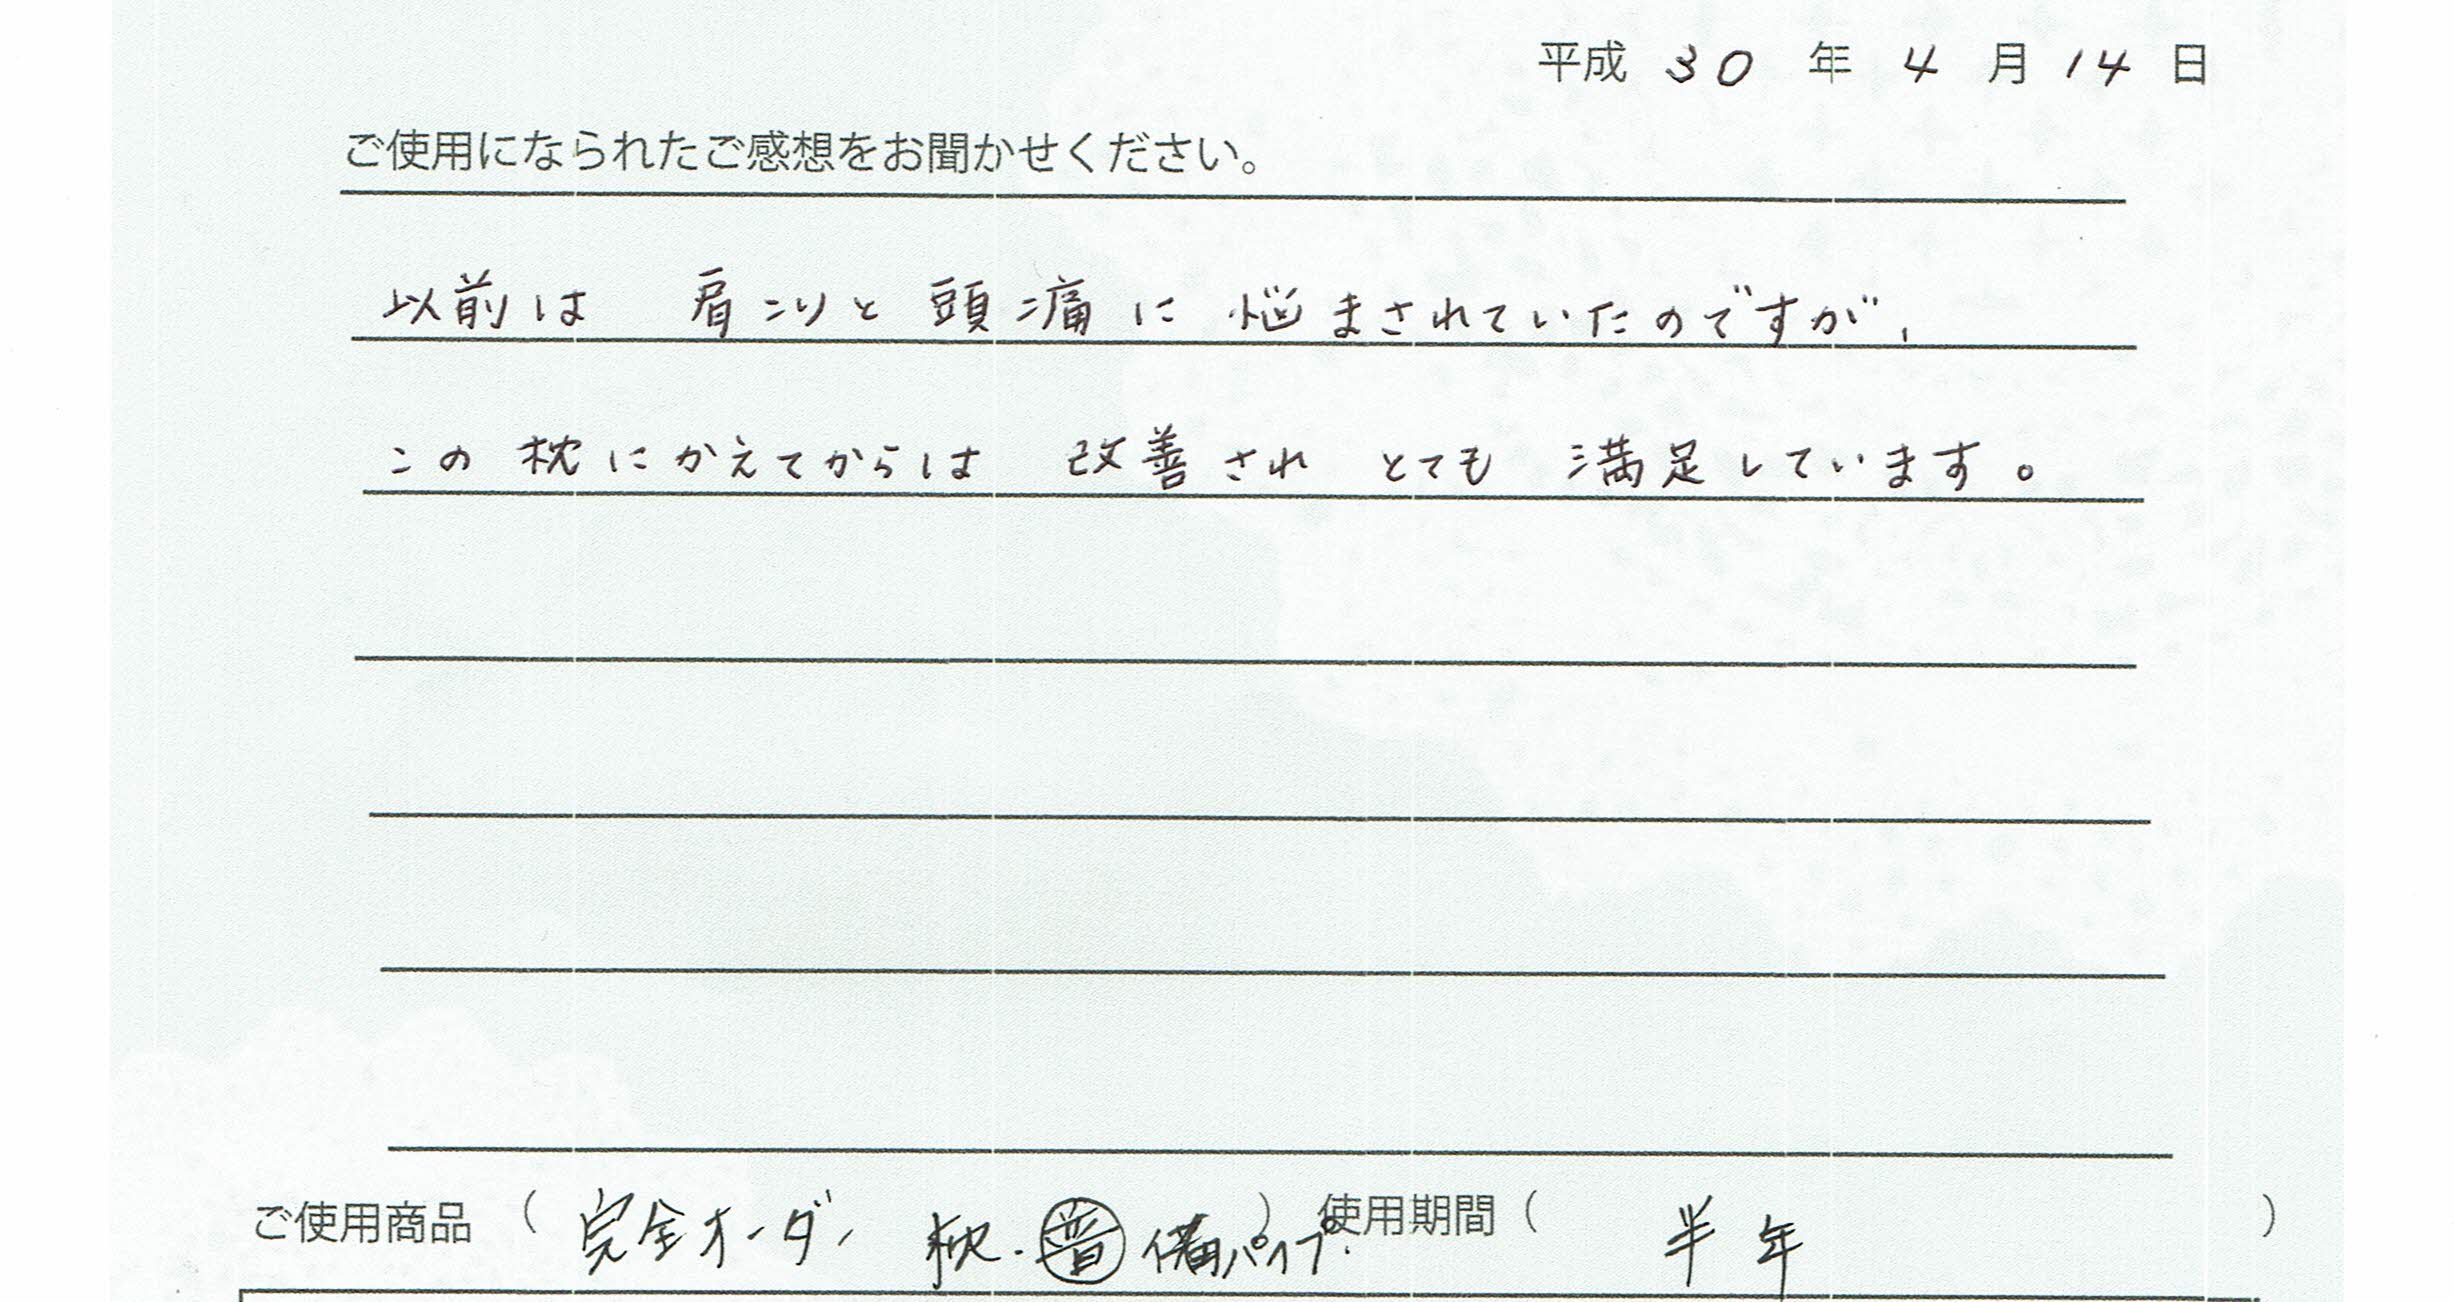 平成 30 年 4 月 14 日
ご使用になられたご感想をお聞かせください。
以前は 肩こりと頭痛に 悩まされていたのですが、
この枕にかえてからは 改善され とても 満足しています。
ご使用商品 ( 完全オーダー 枕・㊟ 備パイプ ) 使用期間 ( 半年 )